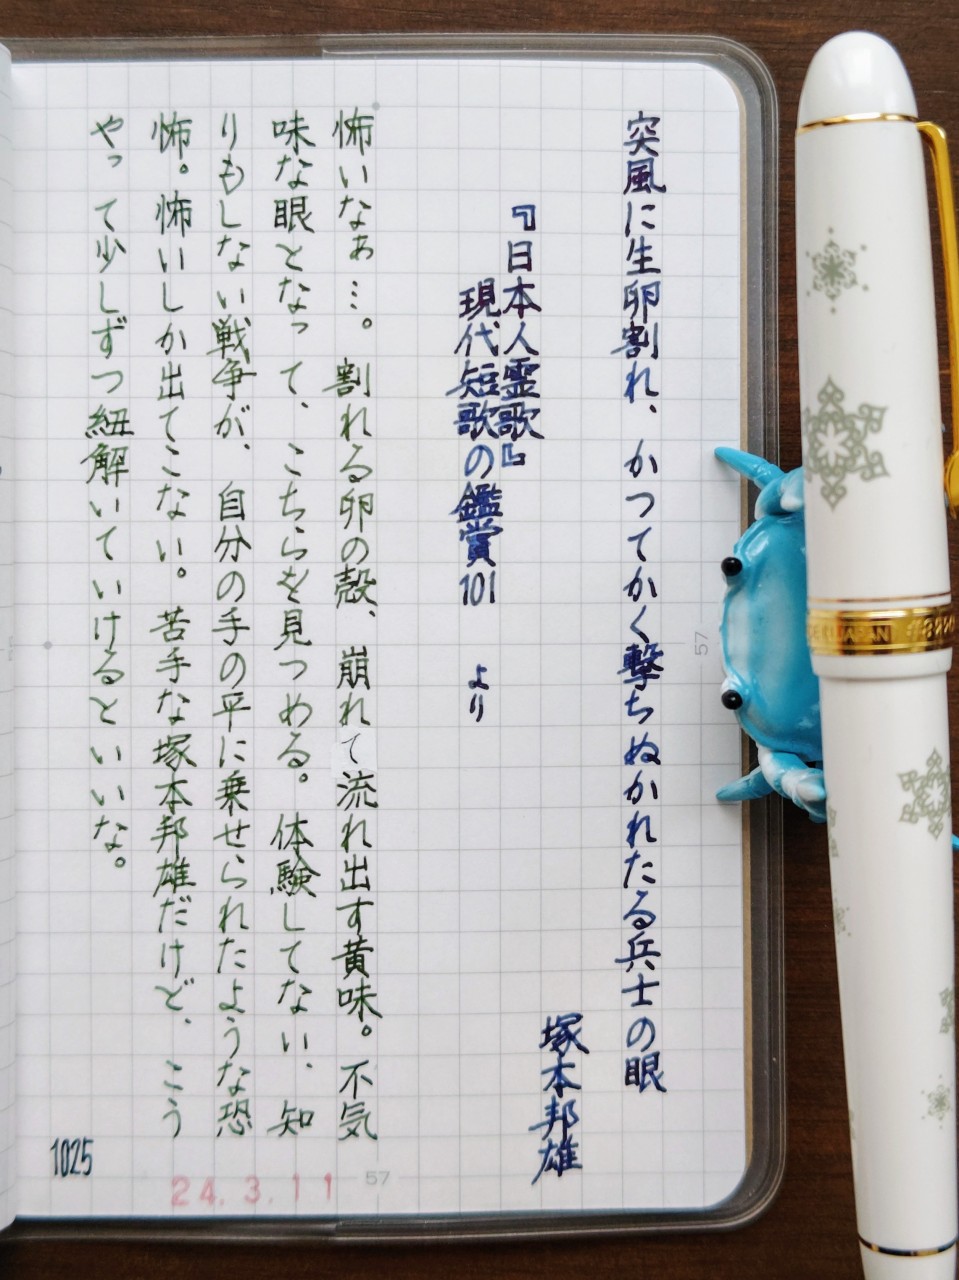 突風に生卵割れ、かつてかく撃ちぬかれたる兵士の眼
塚本邦雄
『日本人霊歌』
現代短歌の鑑賞101 より
怖いなぁ…。割れる卵の殻、崩れて流れ出す黄味。不気
味な眼となって、こちらを見つめる。体験してない、知
りもしない戦争が、自分の手の平に乗せられたような恐
怖。怖いしか出てこない。苦手な塚本邦雄だけど、こう
やって少しずつ紐解いていけるといいな。
1025
24.3.11
57
57
JAPAN